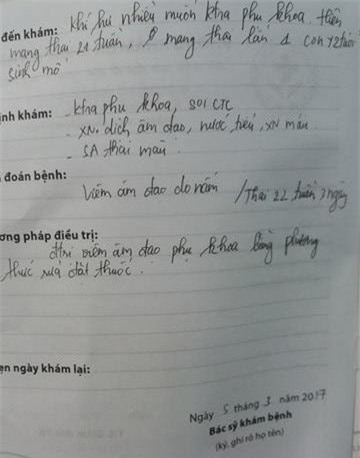 đến khám: khí hư nhiều muốn ktra phụ khoa, hiện
mang thai 21 tuần, mang thai lần 1 con 12 tuổi
sinh mổ
ịnh khám: - ktra phụ khoa, soi CTC
- XN. dịch âm đạo, nước tiểu, XN máu
- SA thai màu
đoán bệnh:
Viêm âm đạo do nấm / Thai 22 tuần 3 ngày
ơng pháp điều trị:
đtrị viêm âm đạo phụ khoa bằng phương
thức rửa đặt thuốc.
ẹn ngày khám lại:
Ngày 5 tháng 3 năm 2017
Bác sỹ khám bệnh
(ký, ghi rõ họ tên)